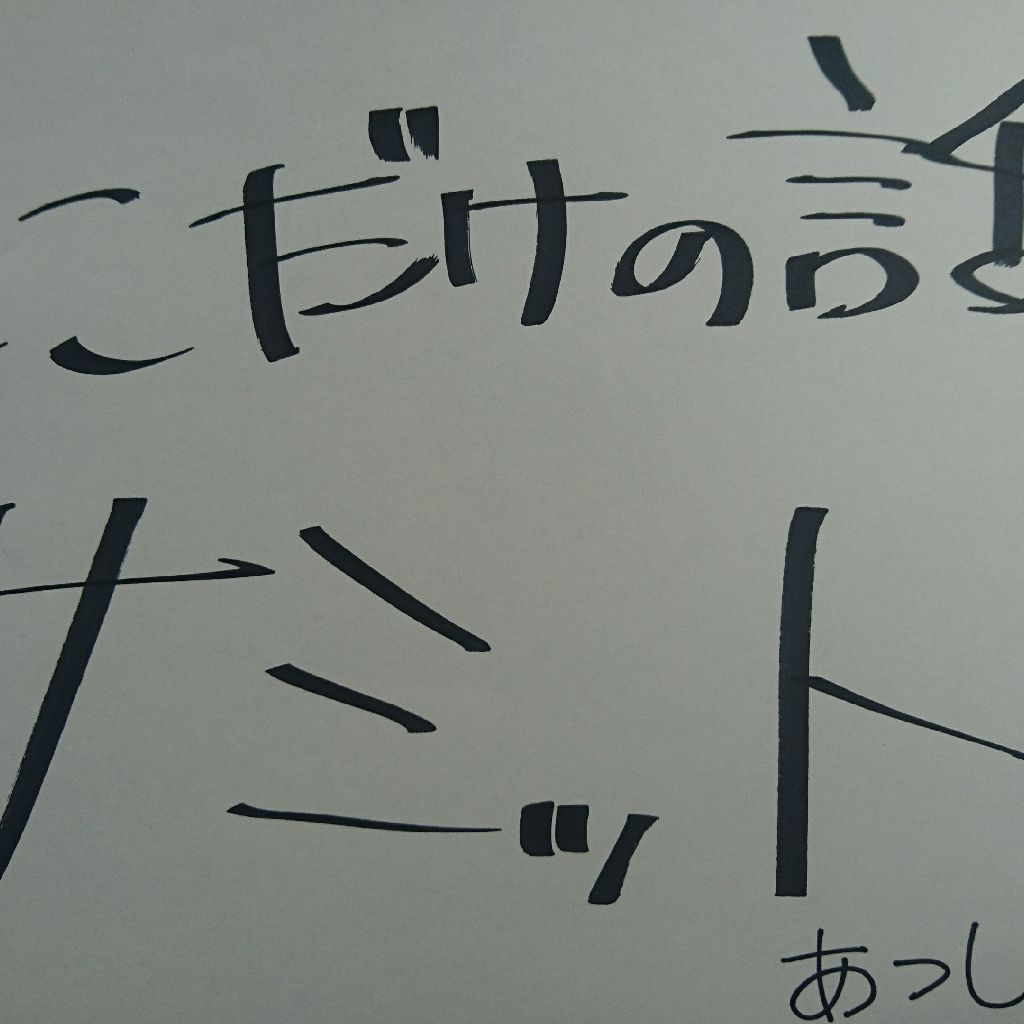 こだけの話
サミット
あっし